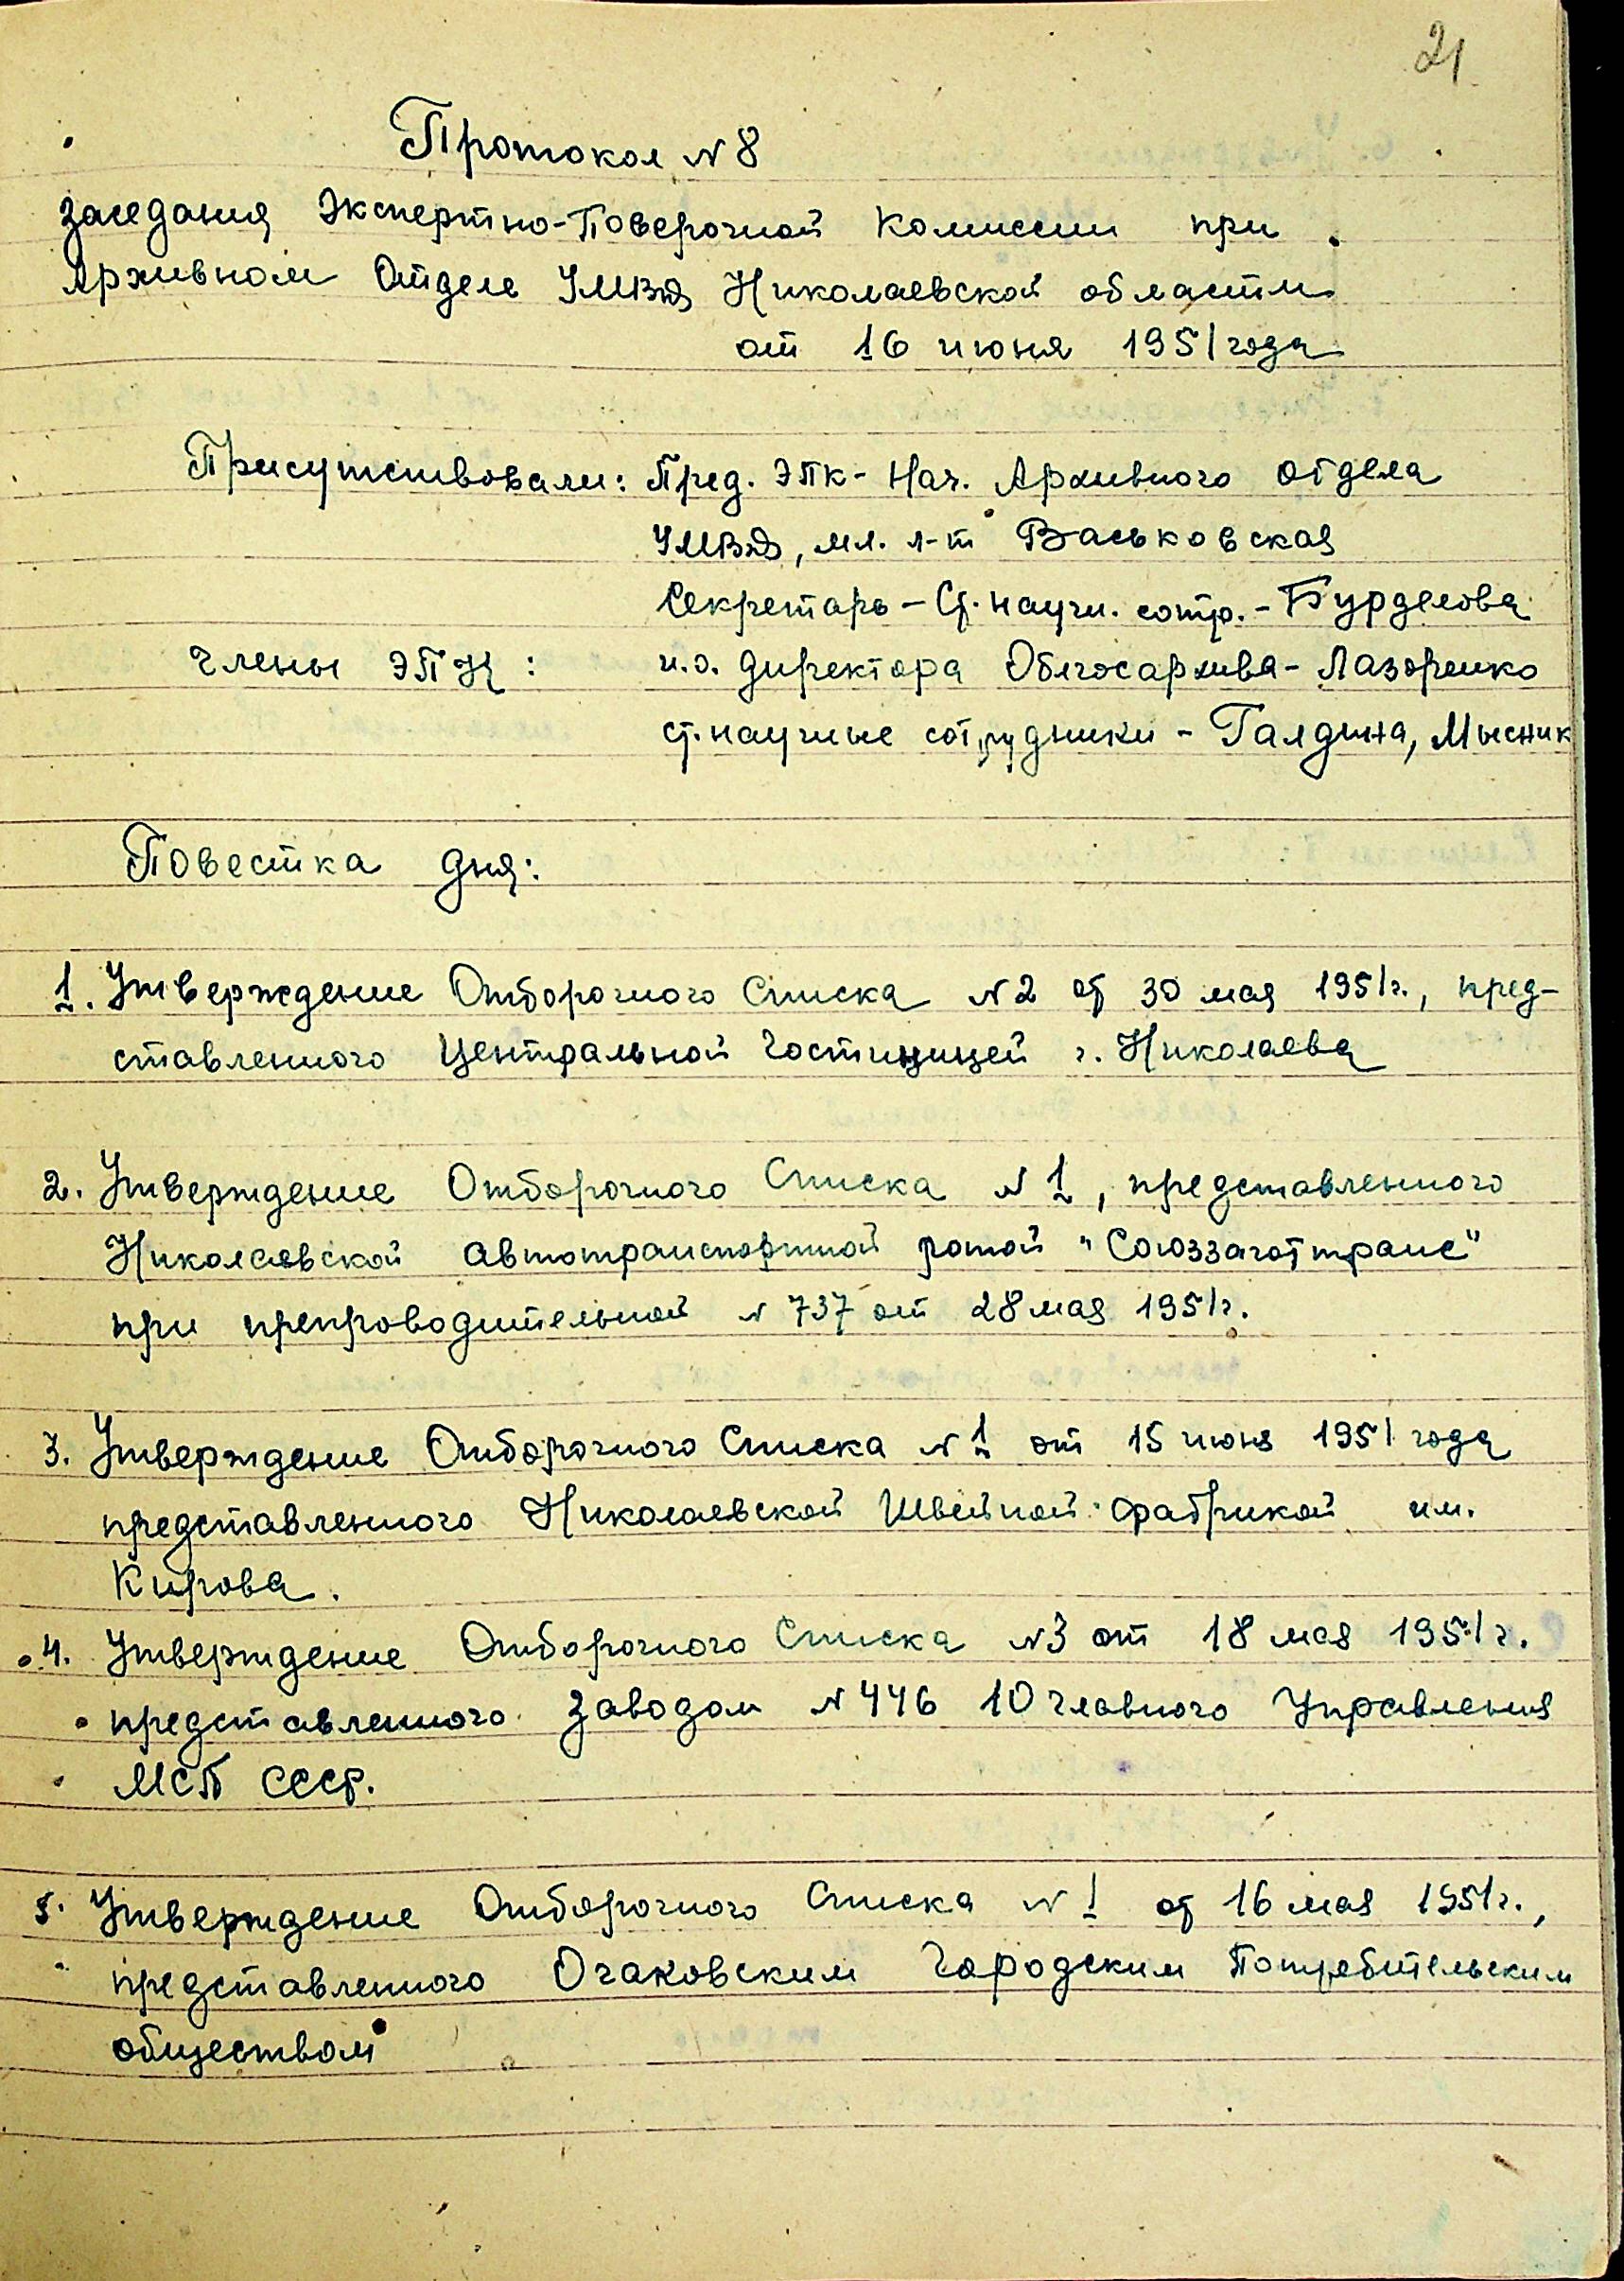 21
Протокол N 8
заседания Экспертно-Поверочной Комиссии при
Архивном Отделе УМВД Николаевской области
от 16 июня 1951 года
Присутствовали: Пред. ЭПК - Нач. Архивного отдела
УМВД, мл. л-т Васьковская
Секретарь - Ст. научн. сотр. - Бурделова
Члены ЭПК: и.о. директора Облгосархива - Лазоренко
ст. научные сотрудники - Галдина, Мысник
Повестка дня:
1. Утверждение Отборочного Списка N 2 от 30 мая 1951 г., пред-
ставленного Центральной Гостиницей г. Николаева
2. Утверждение Отборочного Списка N 1, представленного
Николаевской автотранспортной ротой "Союззаготтранс"
при препроводительной N 737 от 28 мая 1951 г.
3. Утверждение Отборочного Списка N 1 от 15 июня 1951 года
представленного Николаевской Швейной фабрикой им.
Кирова.
4. Утверждение Отборочного Списка N 3 от 18 мая 1951 г.
представленного заводом N 446 10 Главного Управления
МСП СССР.
5. Утверждение Отборочного Списка N 1 от 16 мая 1951 г.,
представленного Очаковским Городским Потребительским
обществом